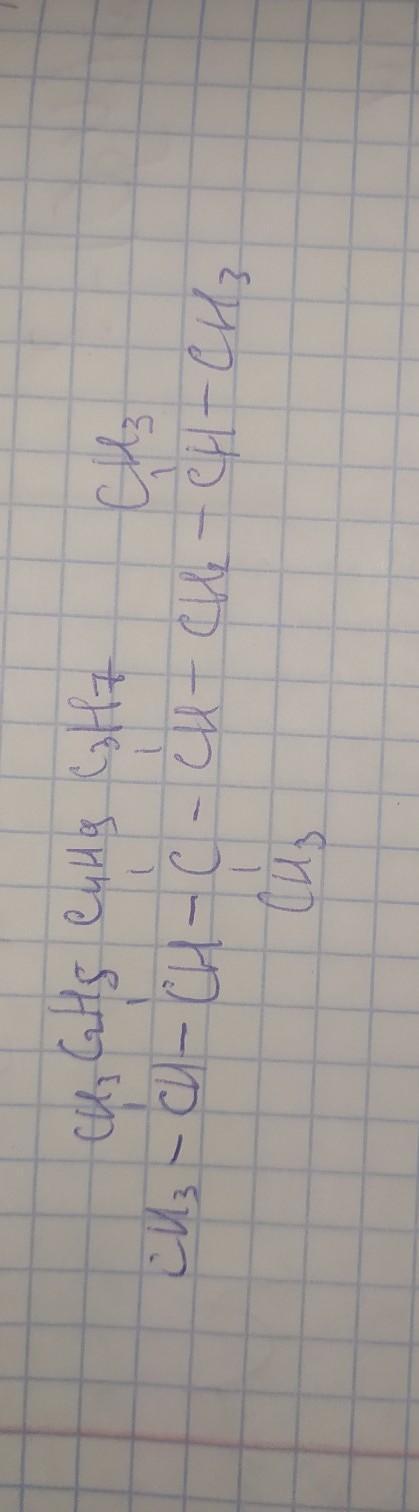 CH3 C2H5 C4H9 C3H7 CH3
CH3 - CH - CH - C - CH - CH2 - CH - CH3
CH3